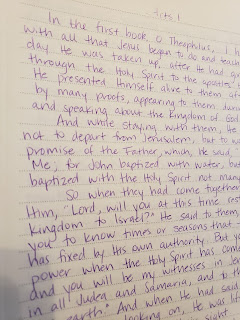 Acts 1
In the first book O Theophilus, I h
with all that Jesus began to do and teach
day He was taken up, after He had giv
through the Holy Spirit to the apostles
He presented Himself alive to them
by many proofs, appearing to them durin
and speaking about the Kingdom of God
And while staying with them, He
not to depart from Jerusalem, but to wa
promise of the Father, which, He said,
Me; for John baptized with water, but
baptized with the Holy Spirit not many
So when they had come together
Him, "Lord, will you at this time res
kingdom to Israel?" He said to them,
you to know times or seasons that
has fixed by His own authority. But yo
power when the Holy Spirit has come
and you will be my witnesses in Je
in all Judea and Samaria, and to th
earth." And when He had said
looking on, He was lif
sight